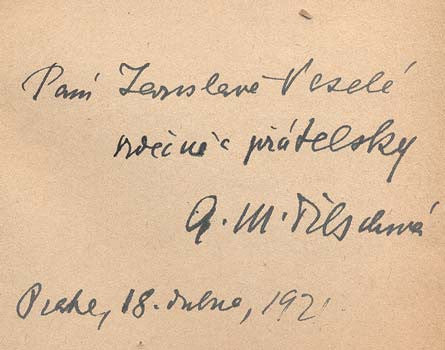 Paní Jaroslavě Veselé
přátelsky
A. M. Tilschová
Praha, 18. dubna,